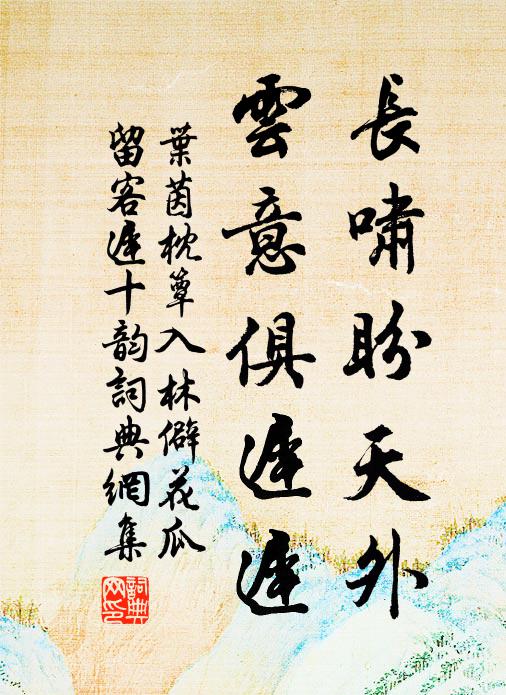 長嘯盼天外
雲意俱遲遲
葉茵枕簟入林僻花瓜
留客遲十韵詞典網集
詞典網印